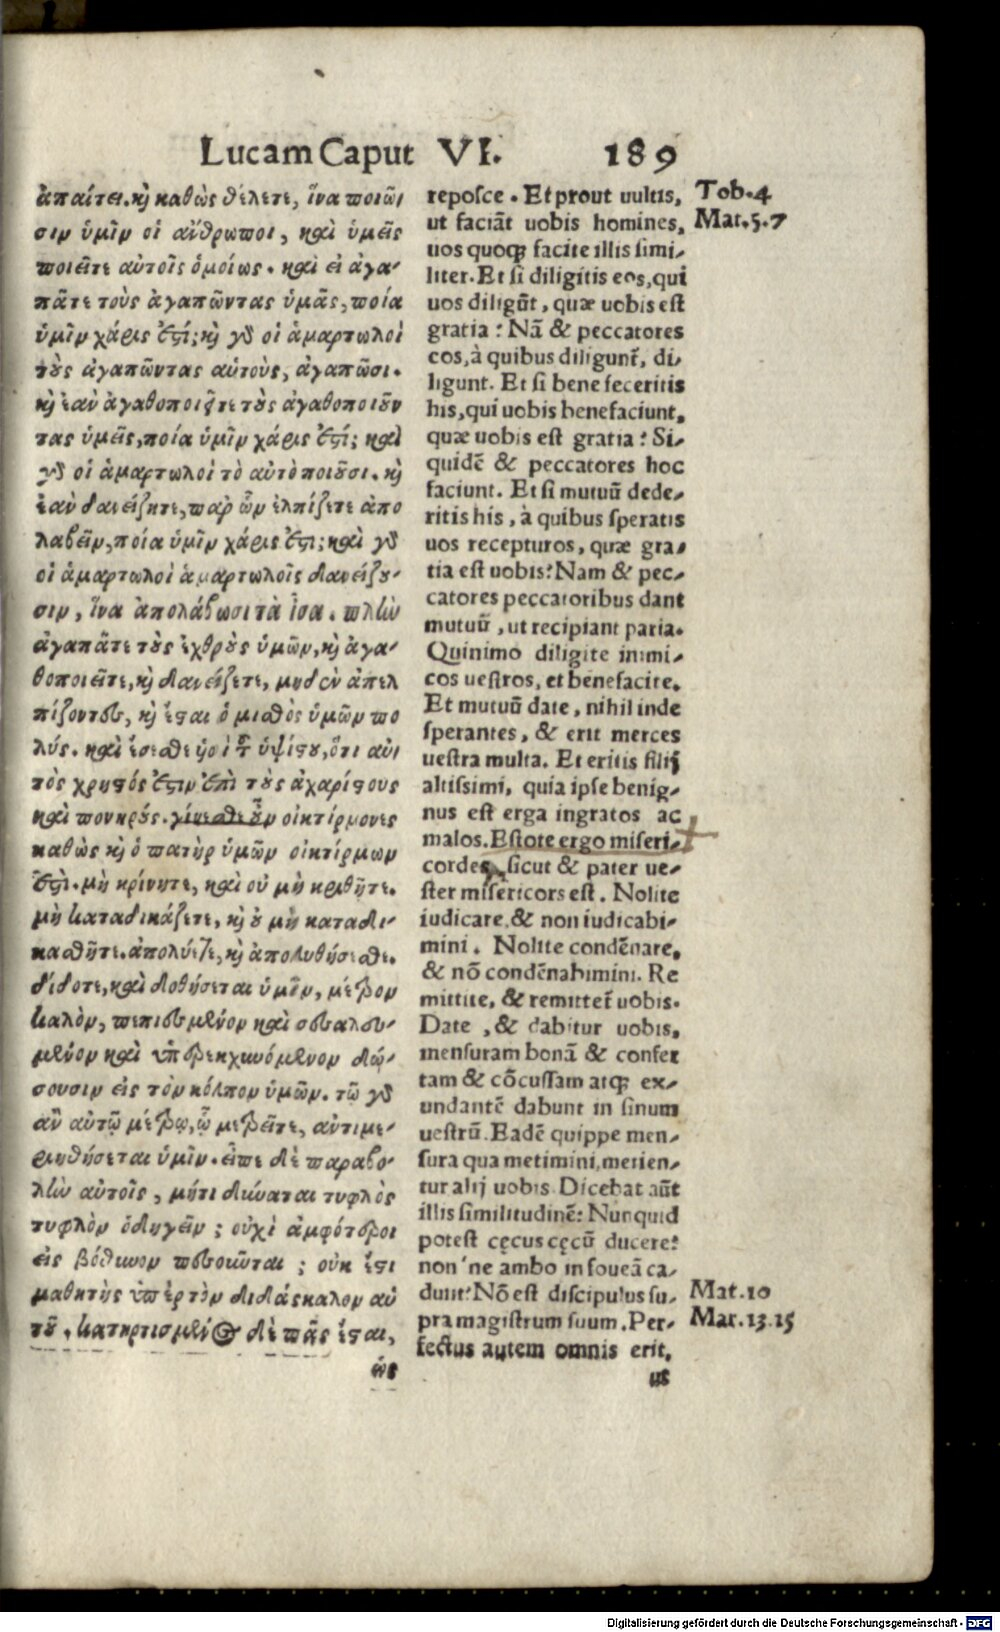 Lucam Caput VI. 189
ἀπαίτει. κὶ καθὼς θέλετε, ἵνα ποιῶι
σιν ὑμῖν οἱ ἄνθρωποι, καὶ ὑμεῖς
ποιεῖτε αὐτοῖς ὁμοίως. καὶ εἰ ἀγα-
πᾶτε τοὺς ἀγαπῶντας ὑμᾶς, ποία
ὑμῖν χάρις ἐστί; κὶ γὰρ οἱ ἁμαρτωλοὶ
τοὺς ἀγαπῶντας αὐτοὺς, ἀγαπῶσι.
κὶ ἐὰν ἀγαθοποιῆτε τοὺς ἀγαθοποιοῦν
τας ὑμεῖς, ποία ὑμῖν χάρις ἐστί; καὶ
γὰρ οἱ ἁμαρτωλοὶ τὸ αὐτὸ ποιοῦσι. κὶ
ἐὰν δανείζητε, παρ' ὧν ἐλπίζετε ἀπο
λαβεῖν, ποία ὑμῖν χάρις ἐστι; καὶ γὰρ
οἱ ἁμαρτωλοὶ ἁμαρτωλοῖς δανείζου-
σιν, ἵνα ἀπολάβωσι τὰ ἶσα. πλὴν
ἀγαπᾶτε τοὺς ἐχθροὺς ὑμῶν, κὶ ἀγα-
θοποιεῖτε, κὶ δανείζετε, μηδὲν ἀπελ
πίζοντες, κὶ ἔσται ὁ μισθὸς ὑμῶν πο
λύς. καὶ ἔσεσθε ὑοὶ τοῦ ὑψίστου, ὅτι αὐ
τὸς χρηστός ἐστιν ἐπὶ τοὺς ἀχαρίστους
καὶ πονηρούς. γίνεσθε οὖν οἰκτίρμονες
καθὼς κὶ ὁ πατὴρ ὑμῶν οἰκτίρμων
ἐστὶ. μὴ κρίνητε, καὶ οὐ μὴ κριθῆτε.
μὴ καταδικάζετε, κὶ οὐ μὴ καταδι-
κασθῆτε. ἀπολύετε, κὶ ἀπολυθήσεσθε.
δίδοτε, καὶ δοθήσεται ὑμῖν, μέτρον
καλὸν, πεπιεσμένον καὶ σεσαλευ-
μένον καὶ ὑπερεκχυνόμενον δώ-
σουσιν εἰς τὸν κόλπον ὑμῶν. τῷ γὰρ
αὐτῷ μέτρῳ, ᾧ μετρεῖτε, ἀντιμε-
τρηθήσεται ὑμῖν. εἶπε δὲ παραβο-
λὴν αὐτοῖς, μήτι δύναται τυφλὸς
τυφλὸν ὁδηγεῖν; οὐχὶ ἀμφότεροι
εἰς βόθυνον πεσοῦνται; οὐκ ἔστι
μαθητὴς ὑπὲρ τὸν διδάσκαλον αὐ
τοῦ. κατηρτισμένος δὲ πᾶς ἔσται,
ὡς
reposce. Et prout uultis,
ut faciãt uobis homines,
uos quoqꝫ facite illis simi-
liter. Et si diligitis eos, qui
uos diligũt, quæ uobis est
gratia? Nã & peccatores
eos, à quibus diligunt̃, di-
ligunt. Et si bene feceritis
his, qui uobis benefaciunt,
quæ uobis est gratia? Si-
quidẽ & peccatores hoc
faciunt. Et si mutuũ dede-
ritis his, à quibus speratis
uos recepturos, quæ gra-
tia est uobis? Nam & pec-
catores peccatoribus dant
mutuũ, ut recipiant paria.
Quinimo diligite inimi-
cos uestros, et benefacite.
Et mutuũ date, nihil inde
sperantes, & erit merces
uestra multa. Et eritis filij
altissimi, quia ipse benig-
nus est erga ingratos ac
malos. Estote ergo miseri-
cordes, sicut & pater ue-
ster misericors est. Nolite
iudicare, & non iudicabi-
mini. Nolite condẽnare,
& nõ condẽnabimini. Re
mittite, & remittet̃ uobis.
Date, & dabitur uobis,
mensuram bonã & confer
tam & cõcussam atqꝫ ex-
undantẽ dabunt in sinum
uestrũ. Eadẽ quippe men-
sura qua metimini, metien-
tur alij uobis. Dicebat aũt
illis similitudinẽ: Nunquid
potest cęcus cęcũ ducere?
non'ne ambo in foueã ca-
dunt? Nõ est discipulus su-
pra magistrum suum. Per-
fectus autem omnis erit,
us
Tob. 4
Mat. 5. 7
Mat. 10
Mar. 13. 15
Digitalisierung gefördert durch die Deutsche Forschungsgemeinschaft - DFG